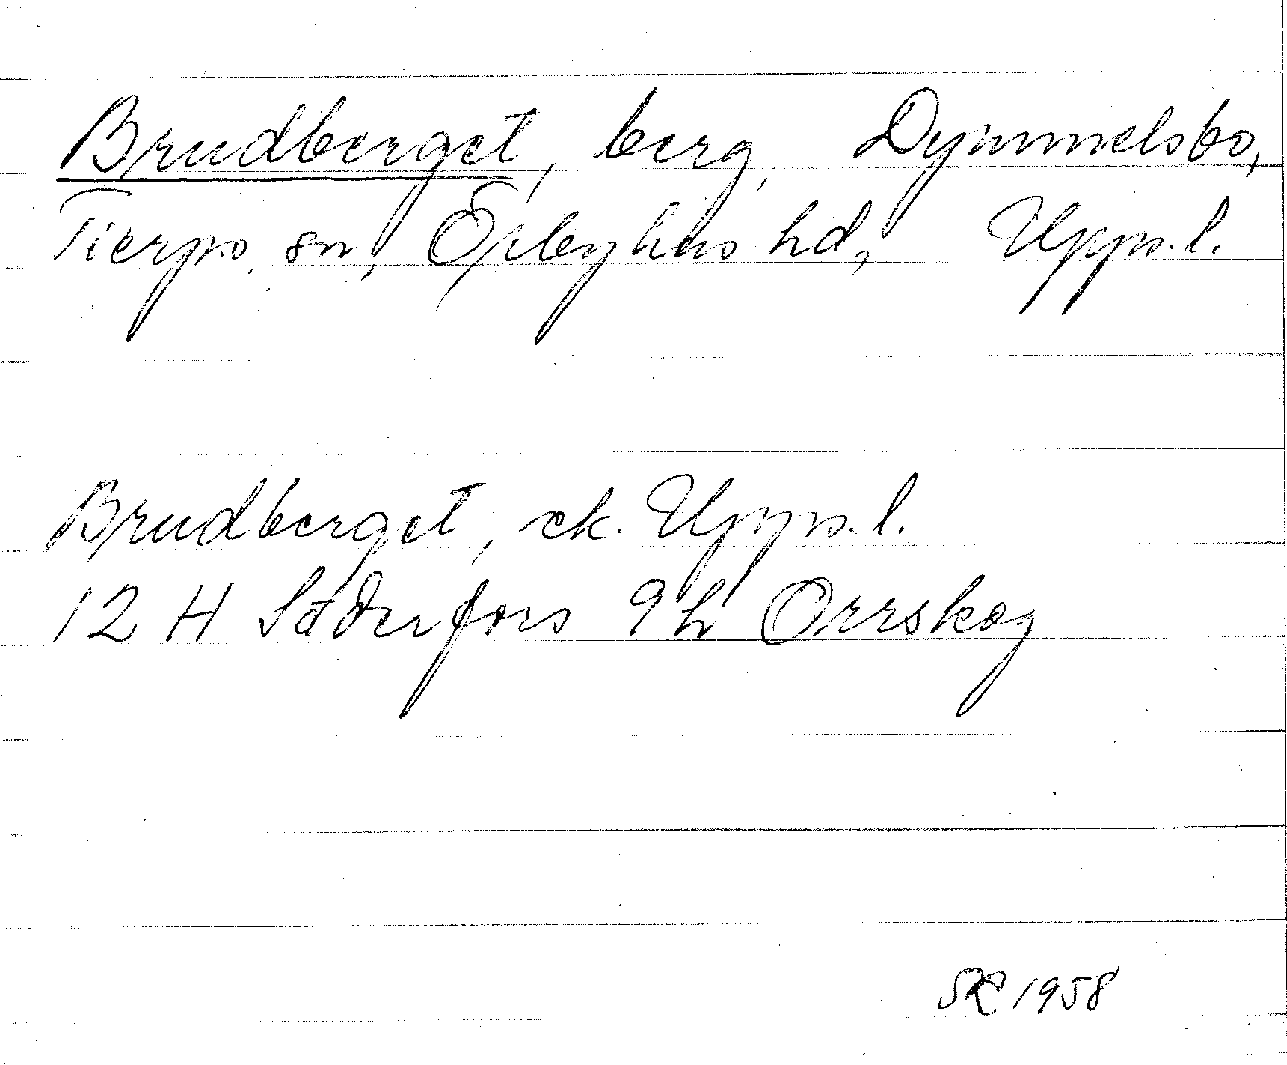 Brudberget, berg, Dymmelsbo,
Tierps sn, Örbyhus hd, Upps. l.
Brudberget, ek. Upps. l.
12 H Söderfors 9h Orrskog
SR 1958